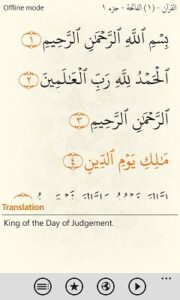 Offline mode
القرآن - (١) الفاتحة - جزء ١
بِسْمِ اللَّهِ الرَّحْمَٰنِ الرَّحِيمِ ١
الْحَمْدُ لِلَّهِ رَبِّ الْعَالَمِينَ ٢
الرَّحْمَٰنِ الرَّحِيمِ ٣
مَالِكِ يَوْمِ الدِّينِ ٤
Translation
King of the Day of Judgement.